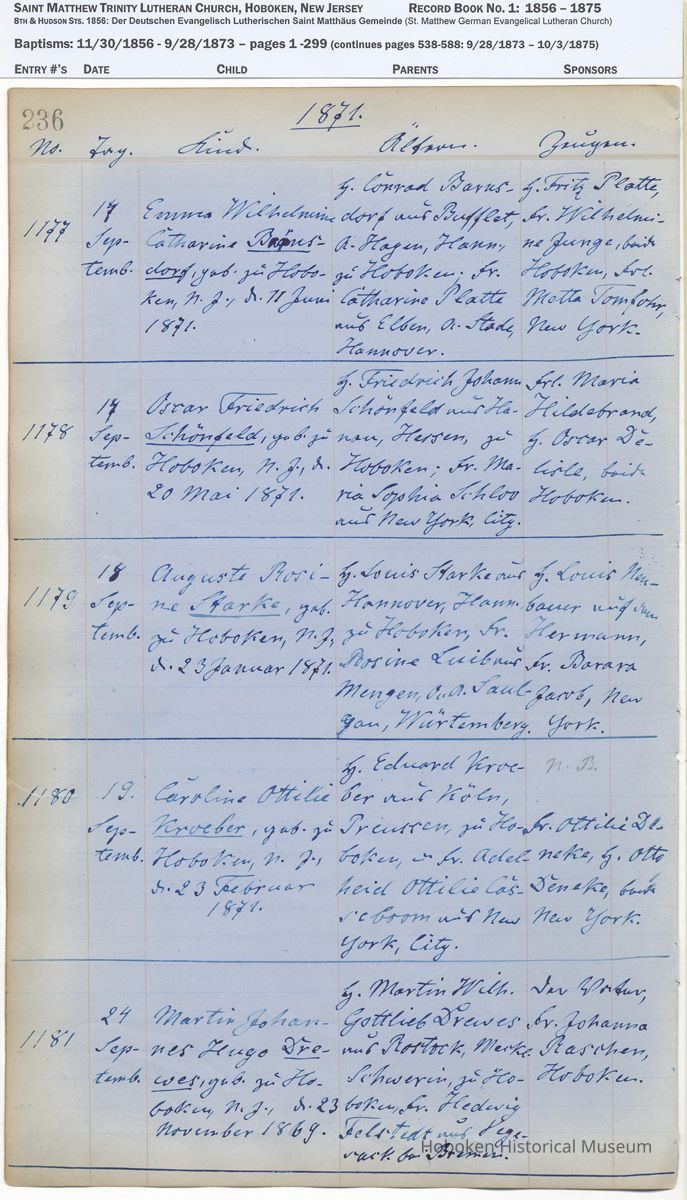 SAINT MATTHEW TRINITY LUTHERAN CHURCH, HOBOKEN, NEW JERSEY RECORD BOOK NO. 1: 1856 – 1875
8TH & HUDSON STS. 1856: Der Deutschen Evangelisch Lutherischen Saint Matthäus Gemeinde (St. Matthew German Evangelical Lutheran Church)
Baptisms: 11/30/1856 - 9/28/1873 – pages 1 -299 (continues pages 538-588: 9/28/1873 – 10/3/1875)
ENTRY #'S DATE CHILD PARENTS SPONSORS
236
1871.
No. Tag. Kind. Ältern. Zeugen.
1177
17
Sep-
temb.
Emma Wilhelmine
Catharine Barns-
dorf, geb. zu Hobo-
ken, N. J., d. 11 Juni
1871.
H. Conrad Barns-
dorf aus Bufflet,
A. Hagen, Hann.,
zu Hoboken; Fr.
Catharine Platte
aus Elben, A. Stade,
Hannover.
H. Fritz Platte,
Fr. Wilhelmi-
ne Junge, beide
Hoboken, Frl.
Metta Tomfohr,
New York.
1178
17
Sep-
temb.
Oscar Friedrich
Schönfeld, geb. zu
Hoboken, N. J., d.
20 Mai 1871.
H. Friedrich Johann
Schönfeld aus Ha-
nau, Hessen, zu
Hoboken; Fr. Ma-
ria Sophia Schloo
aus New York, City.
Frl. Maria
Hildebrand,
H. Oscar De-
lisle, beide
Hoboken.
1179
18
Sep-
temb.
Auguste Rosi-
ne Starke, geb.
zu Hoboken, N. J.,
d. 23 Januar 1871.
H. Louis Starke aus
Hannover, Hann.
zu Hoboken, Fr.
Rosine Luib aus
Mengen, O. A. Saul-
gau, Würtemberg.
H. Louis Neu-
bauer auf dem
Hermann,
Fr. Barara
Jacob, New
York.
1180
19.
Sep-
temb.
Caroline Ottilie
Kroeber, geb. zu
Hoboken, N. J.,
d. 23 Februar
1871.
H. Eduard Kroe-
ber aus Köln,
Preussen, zu Ho-
boken, u. Fr. Adel-
heid Ottilie Cäs-
seboom aus New
York, City.
N. B.
Fr. Ottilie De-
neke, H. Otto
Deneke, beide
New York.
1181
24
Sep-
temb.
Martin Johan-
nes Hugo Dre-
wes, geb. zu Ho-
boken, N. J., d. 23
November 1869.
H. Martin Wilh.
Gottlieb Drewes
aus Rostock, Meckl.
Schwerin, zu Ho-
boken, Fr. Hedwig
Felstedt aus Vege-
sack bei Bremen.
Der Vater,
Fr. Johanna
Raschen,
Hoboken.
Hoboken Historical Museum